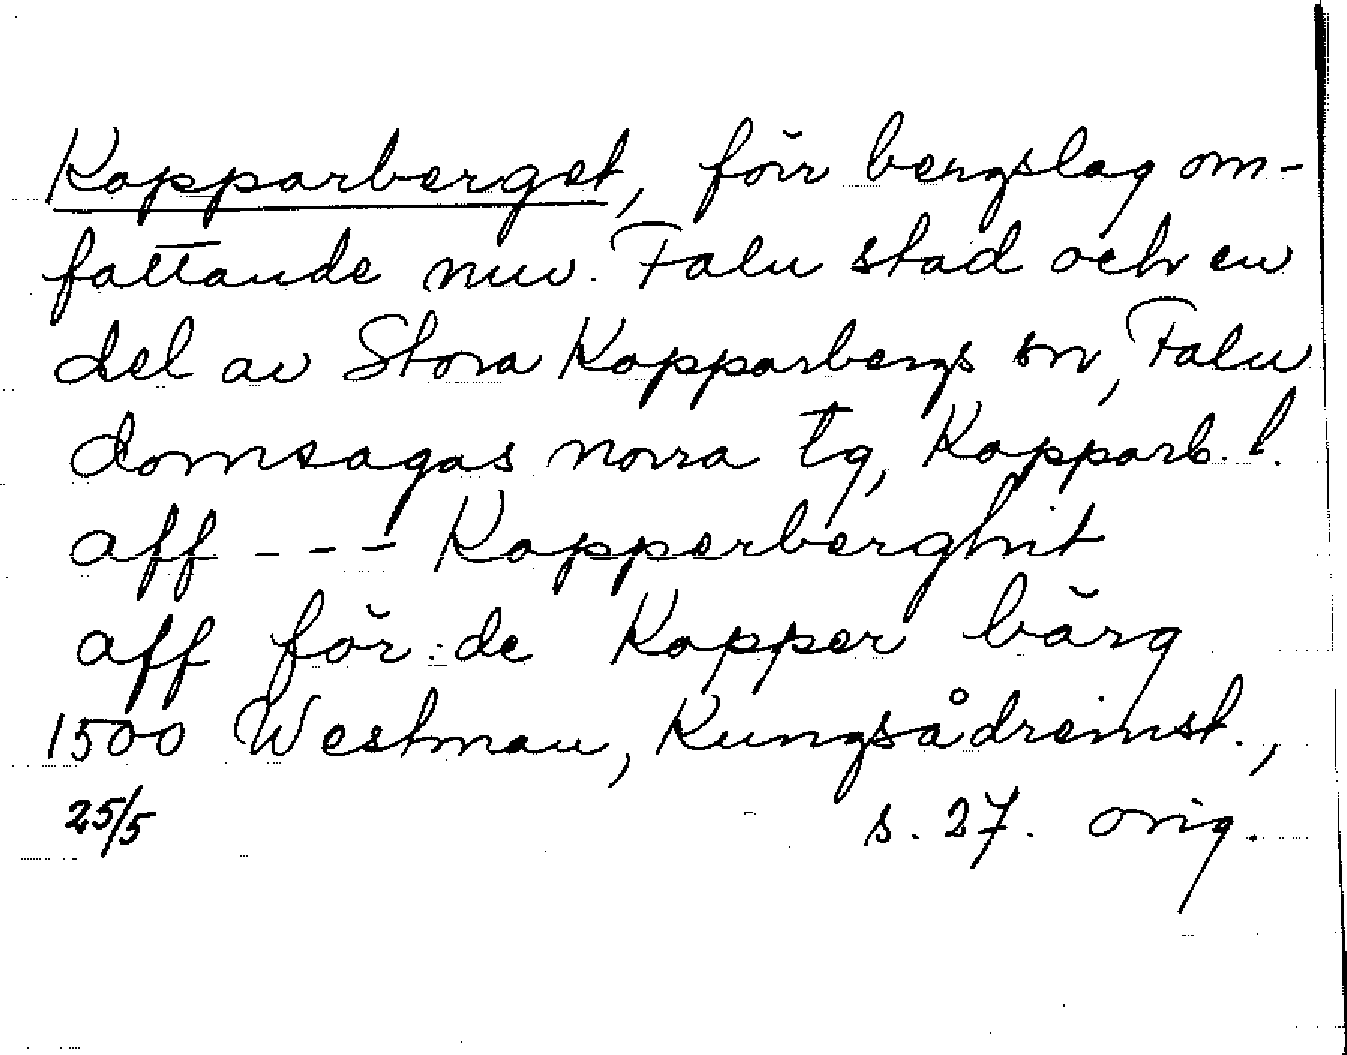 Kopparberget, förr bergslag om-
fattande nuv. Falu stad och en
del av Stora Kopparbergs sn, Falu
domsagas norra tg, Kopparb. l.
aff --- Kopperberghit
aff för: de Kopper bärg
1500 Westman, Kungsådreinst.,
25/5 s. 27. orig.